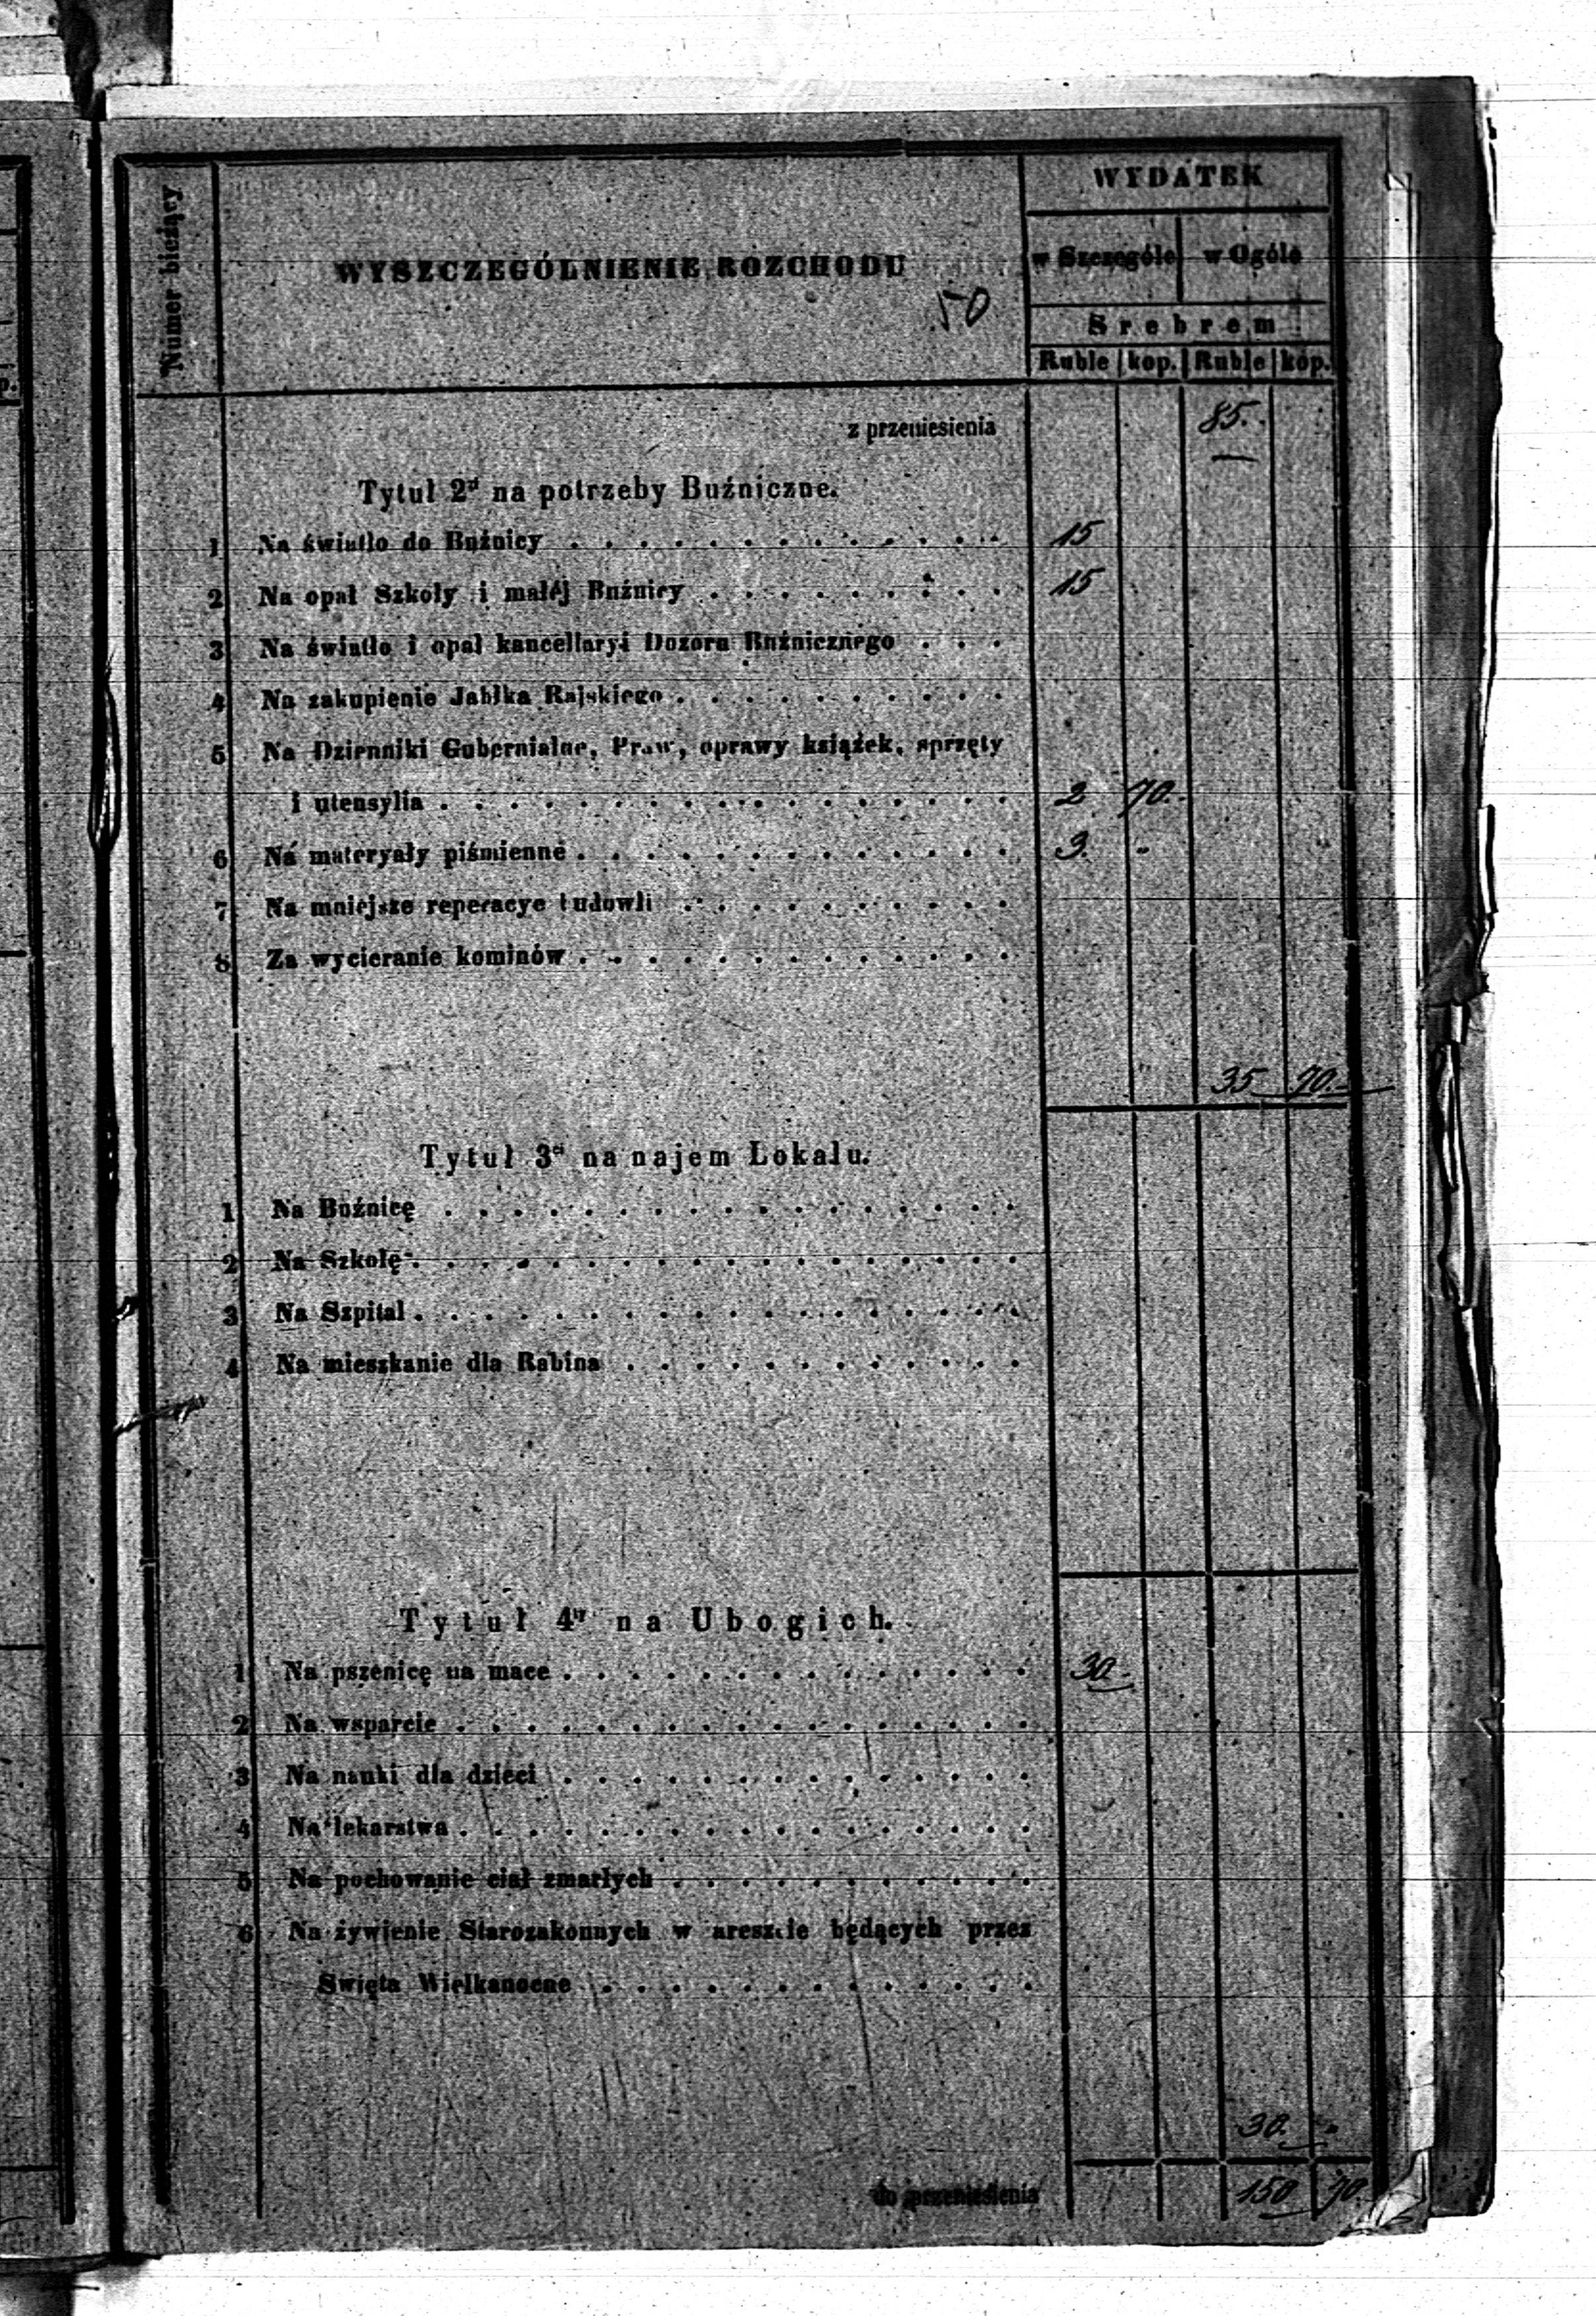 Numer bieżący
WYSZCZEGÓLNIENIE ROZCHODU
50
WYDATEK
w Szczególe w Ogóle
Srebrem
Ruble kop. Ruble kop.
z przeniesienia 85.
Tytuł 2ᵈ na potrzeby Buźniczne.
1 Na światło do Buźnicy 15
2 Na opał Szkoły i małéj Buźnicy 15
3 Na światło i opał kancellaryi Dozoru Buźnicznego
4 Na zakupienie Jabłka Rajskiego
5 Na Dzienniki Gubernialne, Praw, oprawy książek, sprzęty
i utensylia 2 70
6 Na materyały piśmienne 3. "
7 Na mniejsze reperacye budowli
8 Za wycieranie kominów
35 70
Tytuł 3ⁱ na najem Lokalu.
1 Na Boźnicę
2 Na Szkołę
3 Na Szpital
4 Na mieszkanie dla Rabina
Tytuł 4ᵗʸ na Ubogich.
1 Na pszenicę na mace 30
2 Na wsparcie
3 Na nauki dla dzieci
4 Na lekarstwa
5 Na pochowanie ciał zmarłych
6 Na żywienie Starozakonnych w areszcie będących przez
Święta Wielkanocne
30. "
do przeniesienia 150 70